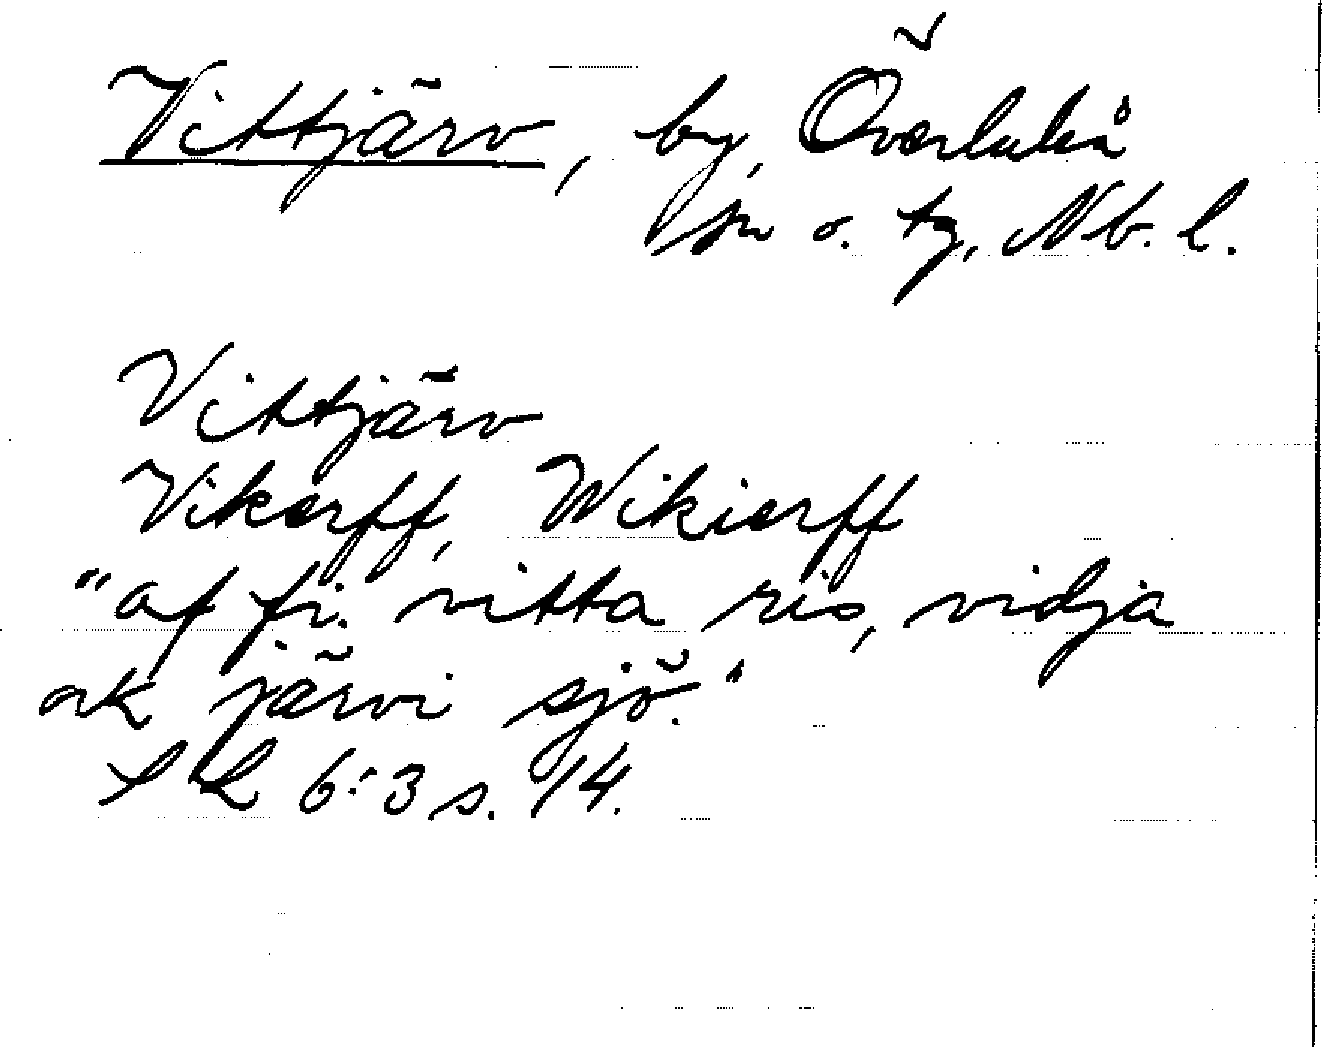 Vittjärv, by, Överluleå
sn o. tg, Nb. l.
Vittjärv
Vikerff, Wikierff
"af fi. vitta ris, vidja
ok järvi sjö."
SL 6:3 s. 14.